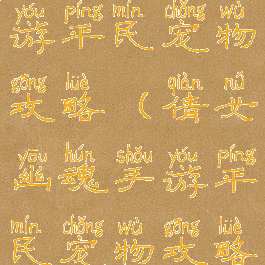 yóu píng mín chǒng wù
游平民宠物
gōng lüè qiàn nǚ
攻略（倩女
yōu hún shǒu yóu píng
幽魂手游平
mín chǒng wù gōng lüè
民宠物攻略